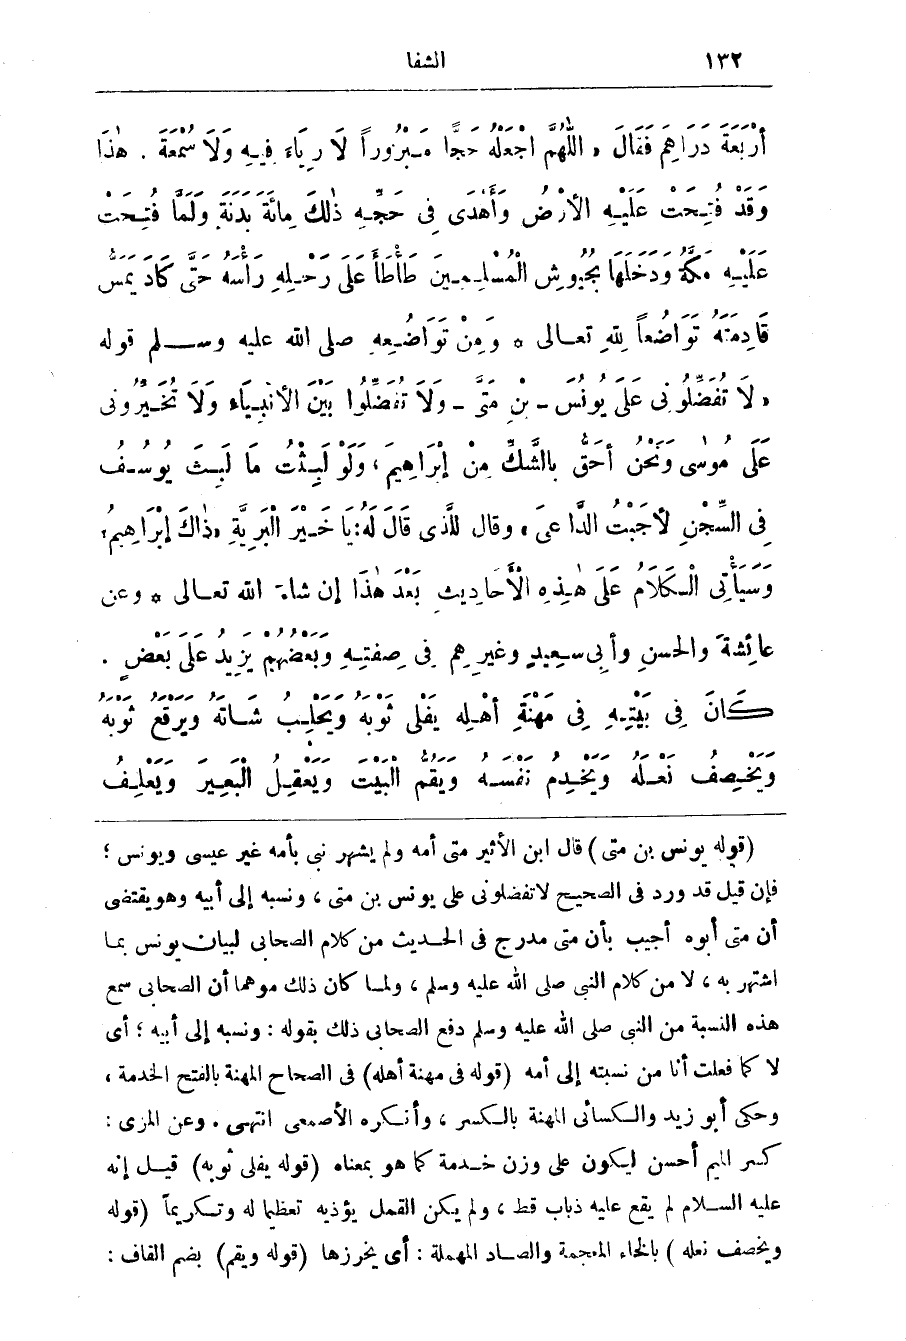 ١٣٢ الشفا
أَرْبَعَةَ دَرَاهِمَ فَقَالَ « اللّٰهُمَّ اجْعَلْهُ حَجًّا مَبْرُوراً لَا رِيَاءَ فِيهِ وَلَا سُمْعَةَ . هٰذَا
وَقَدْ فُتِحَتْ عَلَيْهِ الْأَرْضُ وَأَهْدَى فِى حَجِّهِ ذٰلِكَ مِائَةَ بَدَنَةٍ وَلَمَّا فُتِحَتْ
عَلَيْهِ مَكَّةُ وَدَخَلَهَا بِجُيُوشِ الْمُسْلِمِينَ طَأْطَأَ عَلَى رَحْلِهِ رَأْسَهُ حَتَّى كَادَ يَمَسُّ
قَادِمَتَهُ تَوَاضُعاً لِلّٰهِ تعالى * وَمِنْ تَوَاضُعِهِ صلى الله عليه وسلم قوله
« لَا تُفَضِّلُونِى عَلَى يُونُسَ - بْنِ مَتَّى - وَلَا تُفَضِّلُوا بَيْنَ الْأَنْبِيَاءِ وَلَا تُخَيِّرُونِى
عَلَى مُوسٰى وَنَحْنُ أَحَقُّ بِالشَّكِّ مِنْ إِبْرَاهِيمَ ، وَلَوْ لَبِثْتُ مَا لَبِثَ يُوسُفُ
فِى السِّجْنِ لَأَجَبْتُ الدَّاعِىَ » وقال لِلَّذِى قَالَ لَهُ : يَا خَيْرَ الْبَرِيَّةِ « ذَاكَ إِبْرَاهِيمُ »
وَسَيَأْتِى الْكَلَامُ عَلَى هٰذِهِ الْأَحَادِيثِ بَعْدَ هٰذَا إن شاء الله تعالى * وعن
عائِشةَ والحسنِ وأبِى سعِيدٍ وغيرِهِم فِى صِفتِهِ وَبَعْضُهُمْ يَزِيدُ عَلَى بَعْضٍ .
كَانَ فِى بَيْتِهِ فِى مَهْنَةِ أَهْلِهِ يَفْلِى ثَوْبَهُ وَيَحْلِبُ شَاتَهُ وَيَرْقَعُ ثَوْبَهُ
وَيَخْصِفُ نَعْلَهُ وَيَخْدِمُ نَفْسَهُ وَيَقُمُّ الْبَيْتَ وَيَعْقِلُ الْبَعِيرَ وَيَعْلِفُ
(قوله يونس بن متى) قال ابن الأثير متى أمه ولم يشهر نبى بأمه غير عيسى ويونس ؛
فإن قيل قد ورد فى الصحيح لاتفضلونى على يونس بن متى ، ونسبه إلى أبيه وهو يقتضى
أن متى أبوه أجيب بأن متى مدرج فى الحديث من كلام الصحابى لبيان يونس بما
اشتهر به ، لا من كلام النبى صلى الله عليه وسلم ، ولما كان ذلك موهما أن الصحابى سمع
هذه النسبة من النبى صلى الله عليه وسلم دفع الصحابى ذلك بقوله : ونسبه إلى أبيه ؛ أى
لا كما فعلت أنا من نسبته إلى أمه (قوله فى مهنة أهله) فى الصحاح المهنة بالفتح الخدمة ،
وحكى أبو زيد والكسائى المهنة بالكسر ، وأنكره الأصمعى انتهى . وعن المزى :
كسر الميم أحسن ليكون على وزن خدمة كما هو بمعناه (قوله يفلى ثوبه) قيل إنه
عليه السلام لم يقع عليه ذباب قط ، ولم يكن القمل يؤذيه تعظيما له وتكريماً (قوله
ويخصف نعله) بالخاء المعجمة والصاد المهملة : أى يخرزها (قوله ويقم) بضم القاف :